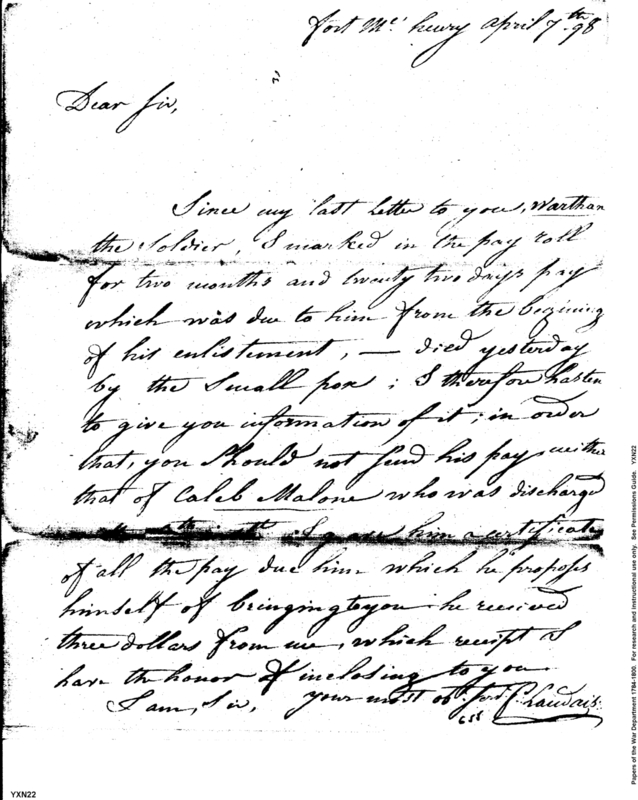 fort Mc henry april 7th 98
Dear Sir,
Since my last letter to you, Warthan
the Soldier, I marked in the pay roll
for two months and twenty two days pay
which was due to him from the begining
of his enlistement, — died yesterday
by the Small pox ; I therefore hasten
to give you information of it ; in order
that, you Should not Send his pay neither
that of Caleb Malone who was discharged
I gave him a certificate
of all the pay due him which he proposes
himself of bringing to you he received
three dollars from me, which receipt I
have the honor of inclosing to you
I am, Sir, your most ob. Servt. Landais
YXN22
Papers of the War Department 1784-1800. For research and instructional use only. See Permissions Guide. YXN22